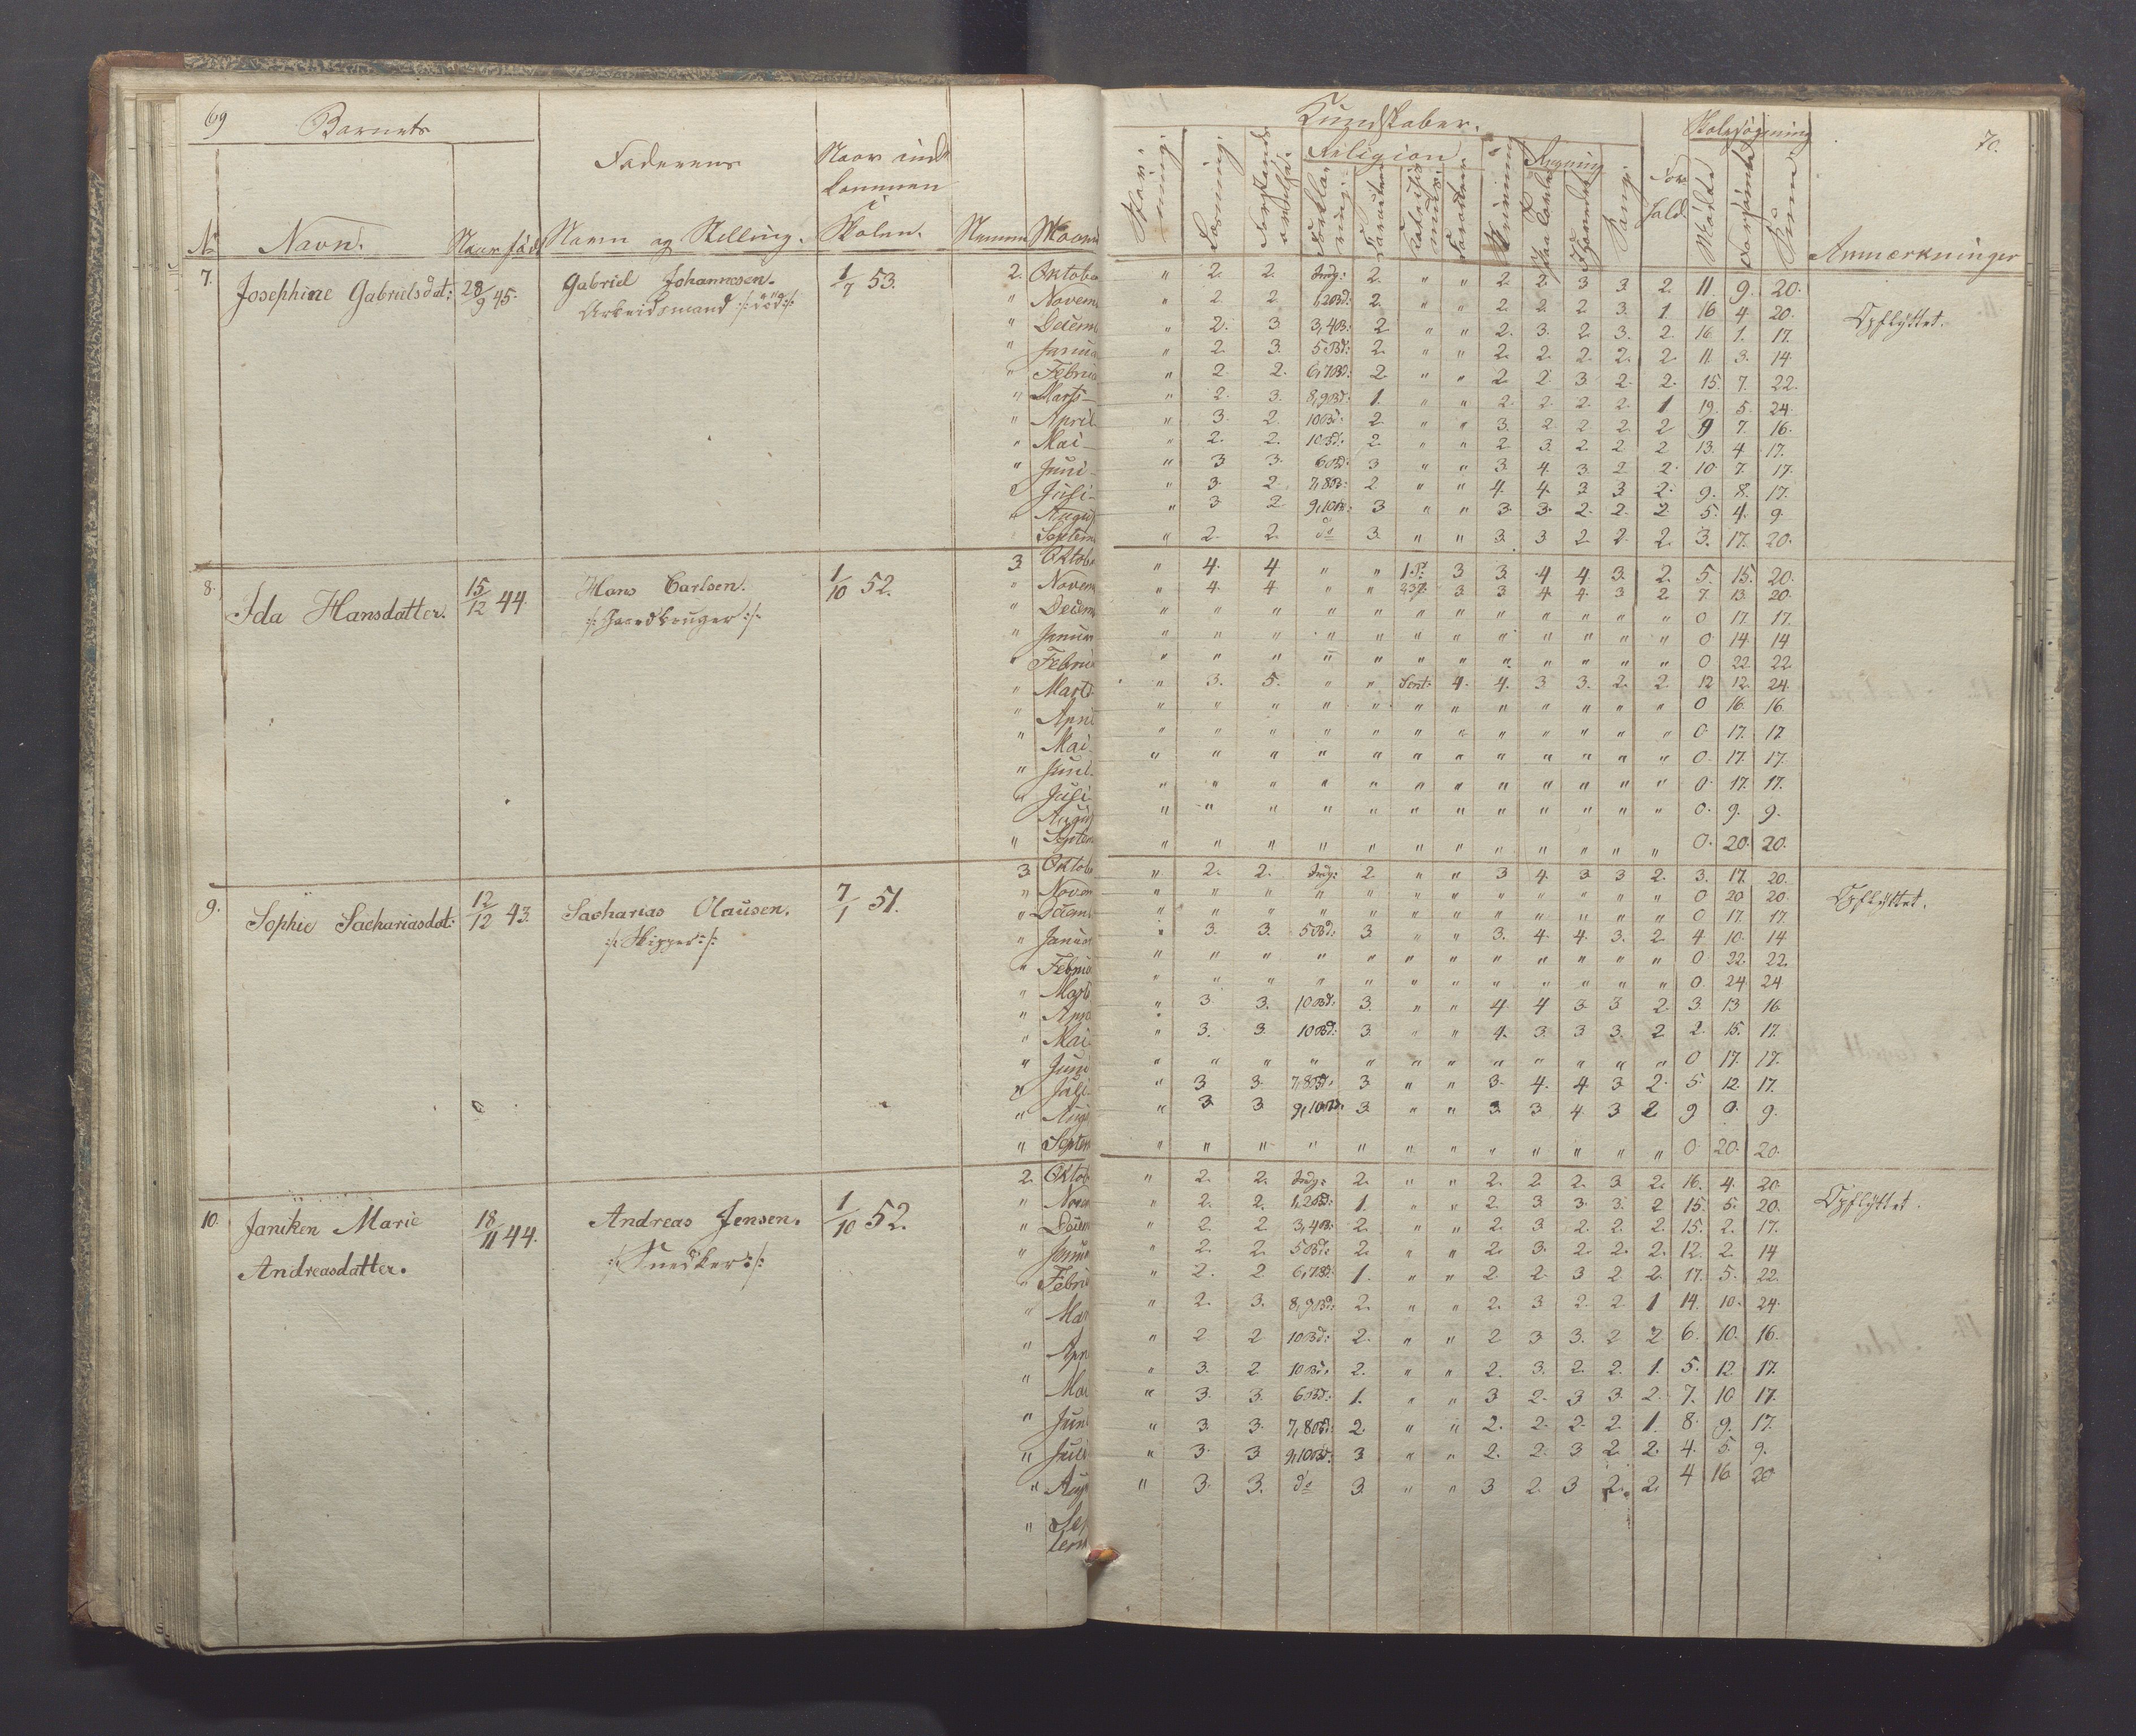 69
Barnets
Faderens
Naar ind-
kommen
i
Skolen.
No
Navn.
Naar født
Navn og Stilling.
Maaned
7.
Josephine Gabrielsdat:
28/9 45.
Gabriel Johannesen.
Arbeidsmand :/: død :/:
1/7 53.
2. Oktober
" Novem
" Decem
" Janua
" Februa
" Marts
" April
" Mai
" Juni
" Juli
" August
Septem
8.
Ida Hansdatter.
15/12 44.
Hans Carlsen.
1/10 52.
3 Oktober
" Novem
" Decem
" Januar
" Februa
" Marts
" April
" Mai
" Juni
" Juli
August
" Septem
9.
Sophie Sachariasdat:
12/12 43.
Sacharias Olausen.
:/: Skipper :/:
7/1 51.
3 Oktober
" Novem
" Decemb
" Januar
" Februa
" Marts
" Apr
" Mai
" Juni
" Juli
" Aug
" Septem
10.
Janiken Marie
Andreasdatter.
18/11 44.
Andreas Jensen.
:/: Snedker :/:
1/10 52.
2. Oktob
" Novem
" Decem
" Janua
" Febru
" Mar
" Apr
" Mai
" Juni
" Juli
" Aug
" Sep
tem
70.
Kundskaber.
Skolesøgning
Religion
Regning
Skriv-
ning.
Læsning.
Forstands
øvelse.
Forkla
ring.
Sang.
For
hold.
Mødte
Forsømte
Sum
Anmærkninger
" 2. 2. Indg: 2. " " 2. 2. 3 3 2. 11 9. 20.
Opflyttet.
" 2. 2. 1,2Bd: 2. " " 2. 2. 2 3. 1. 16 4. 20.
" 2. 3 3,4B: 2 " " 2. 3. 2. 3. 2. 16. 1. 17.
" 2. 3. 5Bd: 2. " " 2. 2. 2. 2. 2. 11 3. 14
" 2. 2. 6,7Bd: 2. " " 2 2. 3 2. 2. 15. 7. 22.
" 2. 3. 8,9Bd: 1. " " 2. 2. 2. 2. 1 19. 5. 24.
" 3. 2. 10Bd: 2. " " 3. 2. 2 2. 2 9 7. 16.
" 2. 2. 10Bd: 2. " " 2. 3. 2 2 2 13. 4. 17.
" 3 3. 6Bd: 3 " " 3 4. 3. 2 2. 10 7. 17.
" 3. 2. 7,8B: 2. " " 4. 4. 3 3 2. 9. 8. 17.
" 3. 2 9,10B: 3 " " 3. 3. 2. 2. 2. 5. 4. 9.
" 2. 2. do 3. " " 3. 3 2 2. 2. 3. 17. 20.
" 4. 4 " " 1P. 3 3. 4 4. 3. 2. 5. 15. 20.
" 4. 4 " " 23P. 3 3 4 4. 3 2 7. 13. 20.
" " " " " " " " " " " " 0 17. 17.
" " " " " " " " " " " " 0 14. 14
" " " " " " " " " " " " 0 22. 22.
" 3. 5. " " Sent: 4. 4. 3 3. 2. 2. 12 12. 24.
" " " " " " " " " " " " 0 16. 16.
" " " " " " " " " " " " 0. 17. 17
" " " " " " " " " " " " 0. 17. 17.
" " " " " " " " " " " " 0. 17. 17.
" " " " " " " " " " " " 0. 9. 9.
" " " " " " " " " " " " 0. 20. 20.
" 2. 2. Indg: 2 " " 3 4. 3 3 2. 3. 17. 20.
Opflyttet.
" " " " " " " " " " " " 0 20 20.
" " " " " " " " " " " " 0 17. 17.
" 3. 3. 5Bd: 3. " " 3. 4. 4. 3. 2 4 10. 14
" " " " " " " " " " " " 0 22. 22.
" " " " " " " " " " " " 0. 24 24
" 3. 3. 10Bd: 3. " " 4 4 3 3 2 3. 13. 16.
" 3. 3. 10Bd: 3. " " 4. 3. 3 3. 2 2. 15. 17.
" " " " " " " " " " " " 0 17. 17.
" 3 3. 7,8Bd: 3 " " 3. 4. 4. 3 2. 5. 12. 17.
" 3. 3 9,10Bd: 3. " " 3. 3 4. 3 2 9 0. 9.
" " " " " " " " " " " " 0. 20. 20.
" 2. 2. Indg: 2. " " 2. 2. 2. 3 2. 16. 4. 20.
Opflyttet.
" 2. 2. 1,2Bd: 1. " " 2. 3 3. 3. 2 15. 5. 20.
" 2. 2 3,4B: 2. " " 2. 3 2. 2. 2. 15. 2. 17.
" 2. 2. 5Bd: 2. " " 2. 3. 2. 2. 2. 12. 2. 14
" 2. 2 6,7B: 1. " " 2 2. 3 2 2. 17. 5. 22.
" 2. 3. 8,9Bd: 2. " " 2. 3 2. 2. 1 14. 10. 24.
" 2 2 10Bd: 2. " " 2 3 3. 2 2 6. 10. 16.
" 3. 2 10Bd: 2. " " 2. 3. 2. 2. 1. 5. 12. 17.
" 3. 3. 6Bd: 1. " " 3 2. 3 3. 2. 7. 10 17.
" 3. 3. 7,8Bd: 2. " " 2. 2. 2. 2. 1. 8. 9. 17.
" 3. 3 9,10Bd: 3 " " 2. 2. 3 2. 2. 4. 5. 9.
" 3. 3. do 3. " " 3 2. 3 2. 2. 4 16. 20